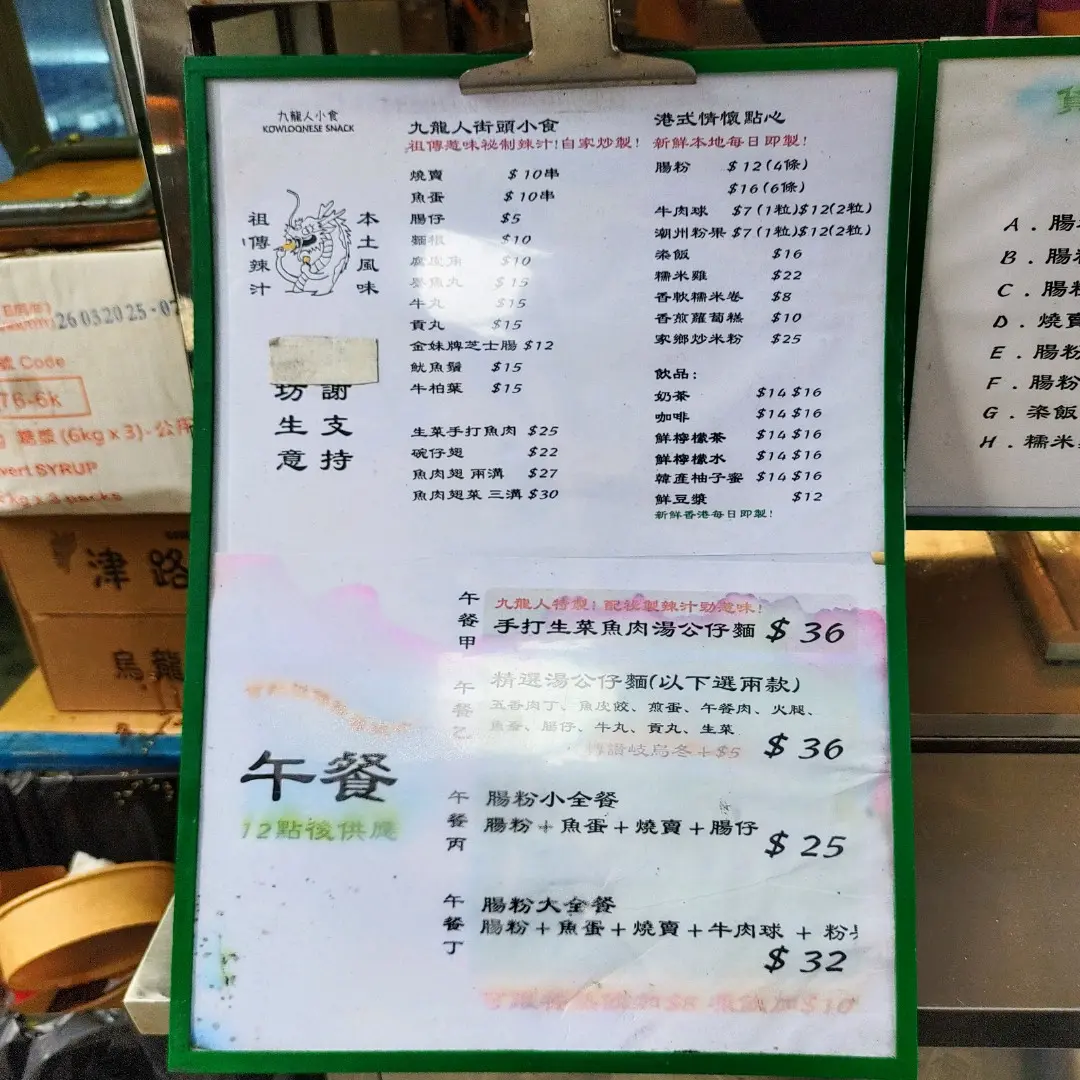 九龍人小食
KOWLOONESE SNACK
祖傳辣汁
本土風味
謝
支持
坊
生意
九龍人街頭小食
祖傳惹味祕制辣汁!自家炒製!
燒賣 $10串
魚蛋 $10串
腸仔 $5
麵根 $10
$10
$15
牛丸 $15
貢丸 $15
金妹牌芝士腸 $12
魷魚鬚 $15
牛柏葉 $15
生菜手打魚肉 $25
碗仔翅 $22
魚肉翅 兩溝 $27
魚肉翅菜 三溝 $30
港式情懷點心
新鮮本地每日即製!
腸粉 $12(4條)
$16(6條)
牛肉球 $7(1粒)$12(2粒)
潮州粉果 $7(1粒)$12(2粒)
染飯 $16
糯米雞 $22
香軟糯米卷 $8
香煎蘿蔔糕 $10
家鄉炒米粉 $25
飲品:
奶茶 $14 $16
咖啡 $14 $16
鮮檸檬茶 $14 $16
鮮檸檬水 $14 $16
韓產柚子蜜 $14 $16
鮮豆漿 $12
新鮮香港每日即製!
午餐
12點後供應
午餐甲
九龍人特製! 配後製辣汁勁惹味!
手打生菜魚肉湯公仔麵 $36
午餐乙
精選湯公仔麵(以下選兩款)
五香肉丁、魚皮餃、煎蛋、午餐肉、火腿、
魚蛋、腸仔、牛丸、貢丸、生菜
讚岐烏冬+$5
$36
午餐丙
腸粉小全餐
腸粉+魚蛋+燒賣+腸仔
$25
午餐丁
腸粉大全餐
腸粉+魚蛋+燒賣+牛肉球 + 粉
$32
A. 腸
B. 腸
C. 腸
D. 燒賣
E. 腸粉
F. 腸粉
G. 染飯
H. 糯米
26032025
Code
T6-6k
糖漿 (6kg x 3)
vert SYRUP
津路
烏龍